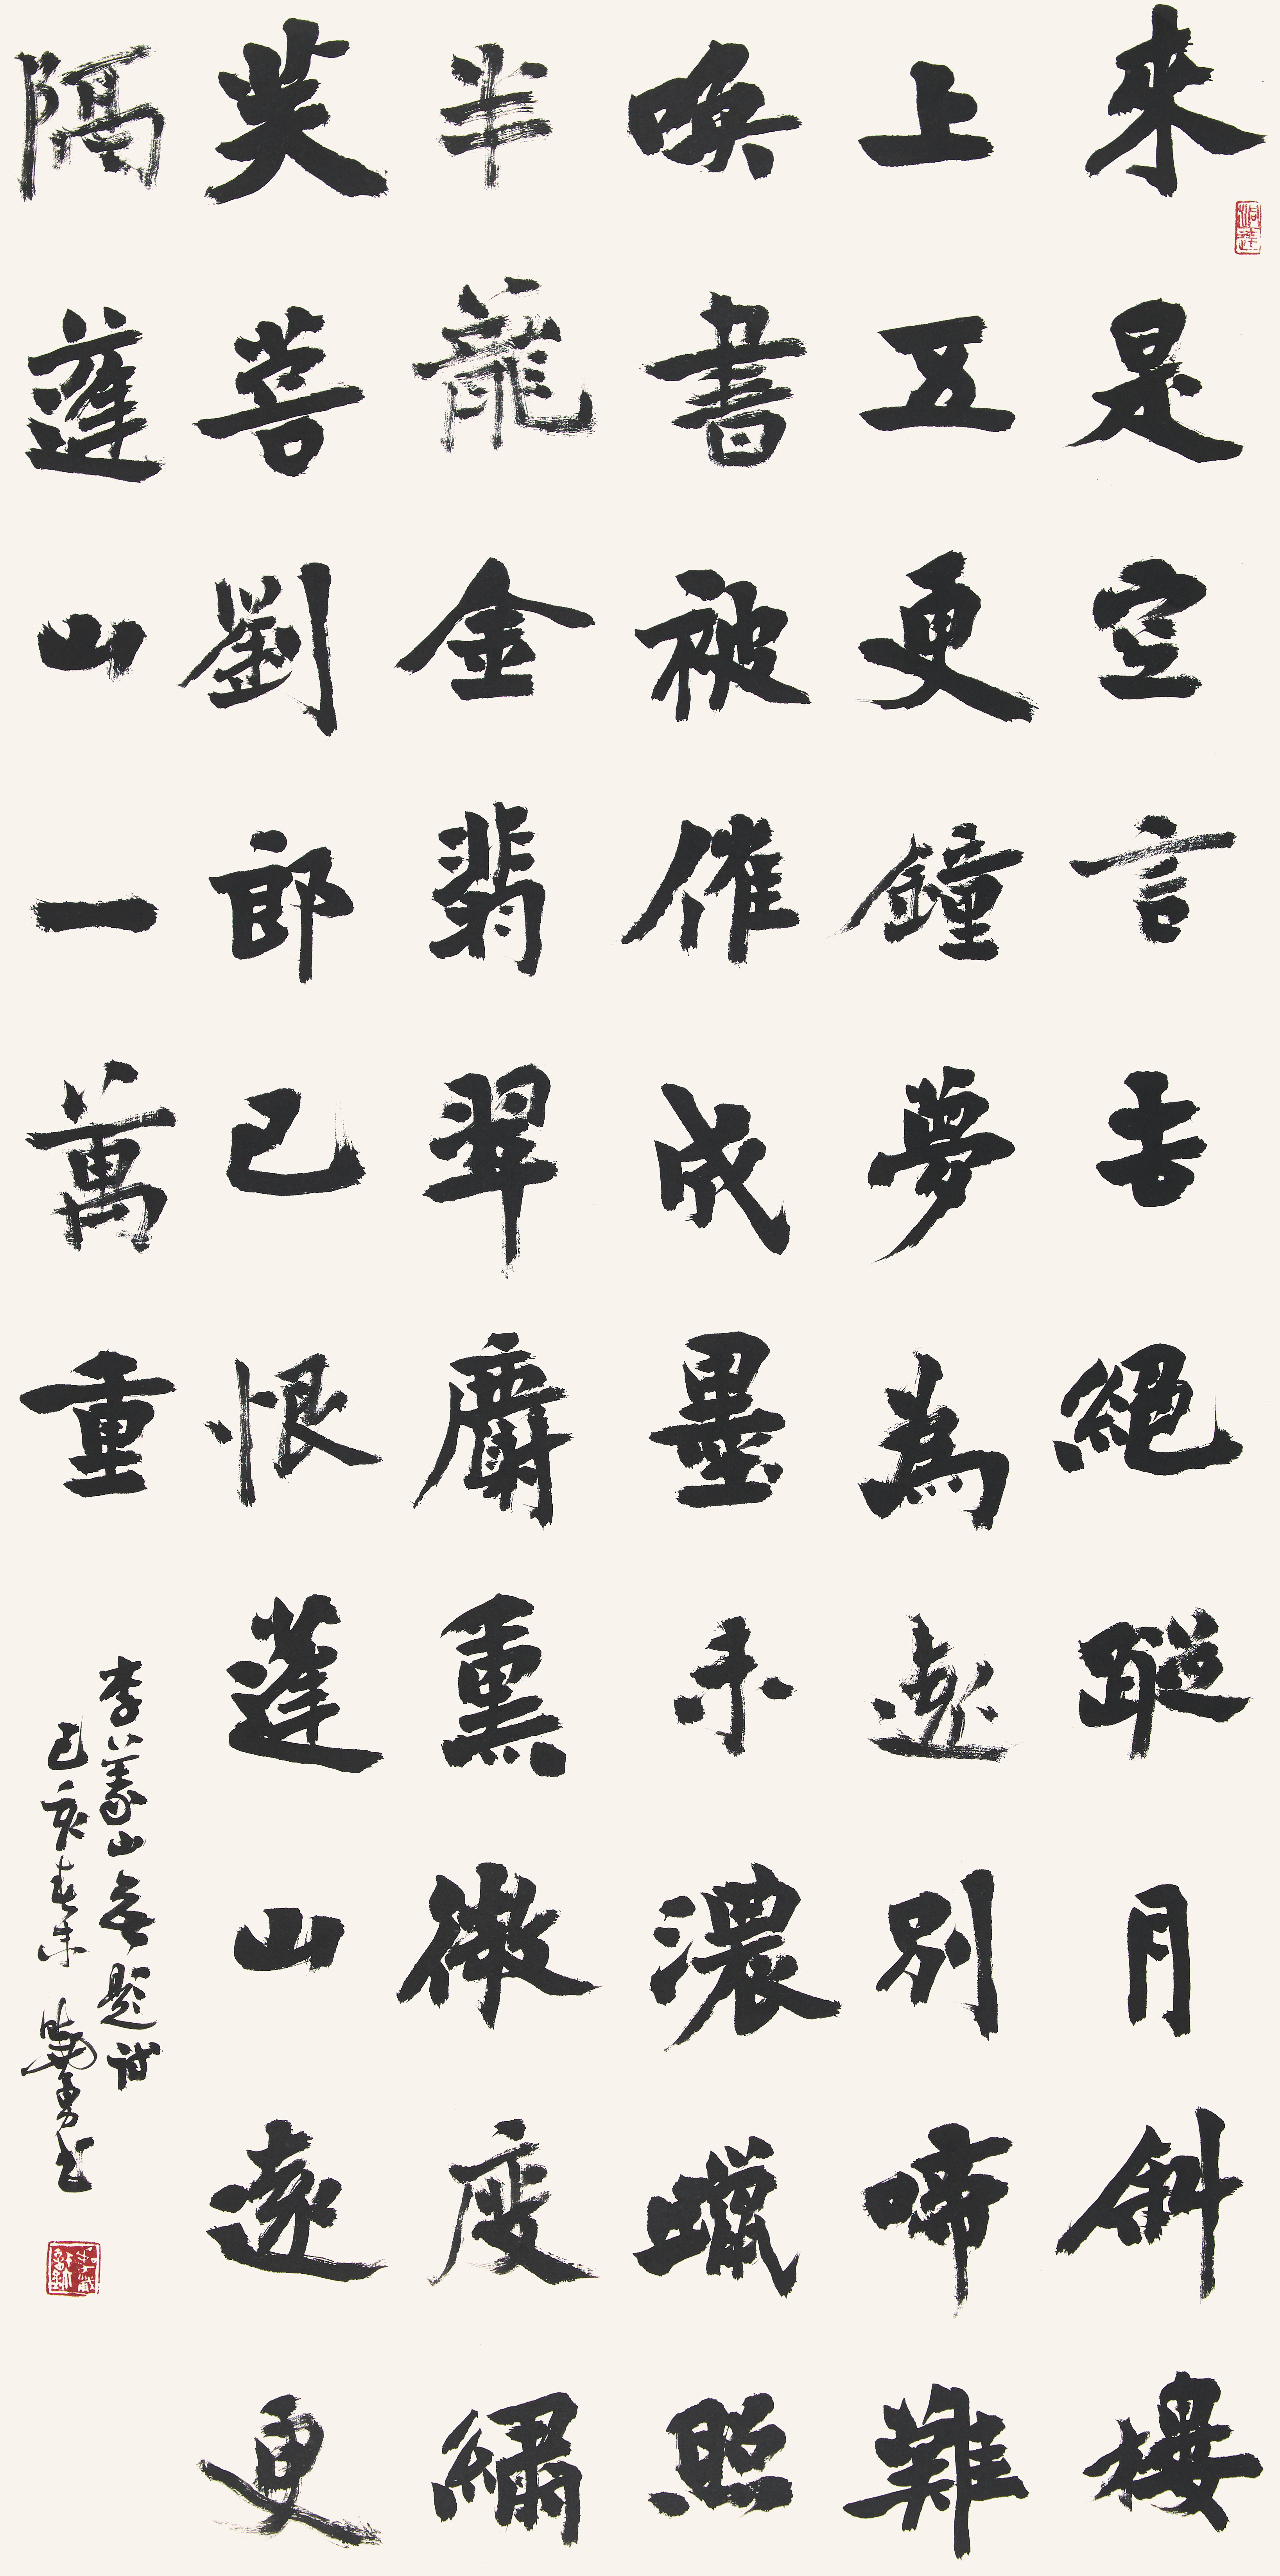 來是空言去絕蹤月斜樓
上五更鐘夢為遠別啼難
喚書被催成墨未濃蠟照
半籠金翡翠麝熏微度繡
芙蓉劉郎已恨蓬山遠更
隔蓬山一萬重
李義山無題詩
己亥春末曉勇書